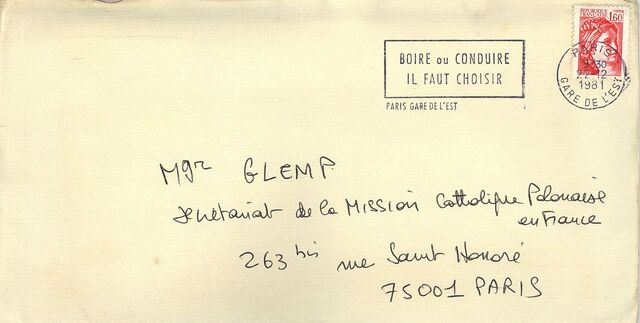 REPUBLIQUE FRANÇAISE
1,60
BOIRE ou CONDUIRE
IL FAUT CHOISIR
PARIS GARE DE L'EST
PARIS
9H30
22-12
1981
GARE DE L'EST
Mgr GLEMP.
Secrétariat de la Mission Catholique Polonaise
en France
263 bis rue Saint Honoré
75001 PARIS